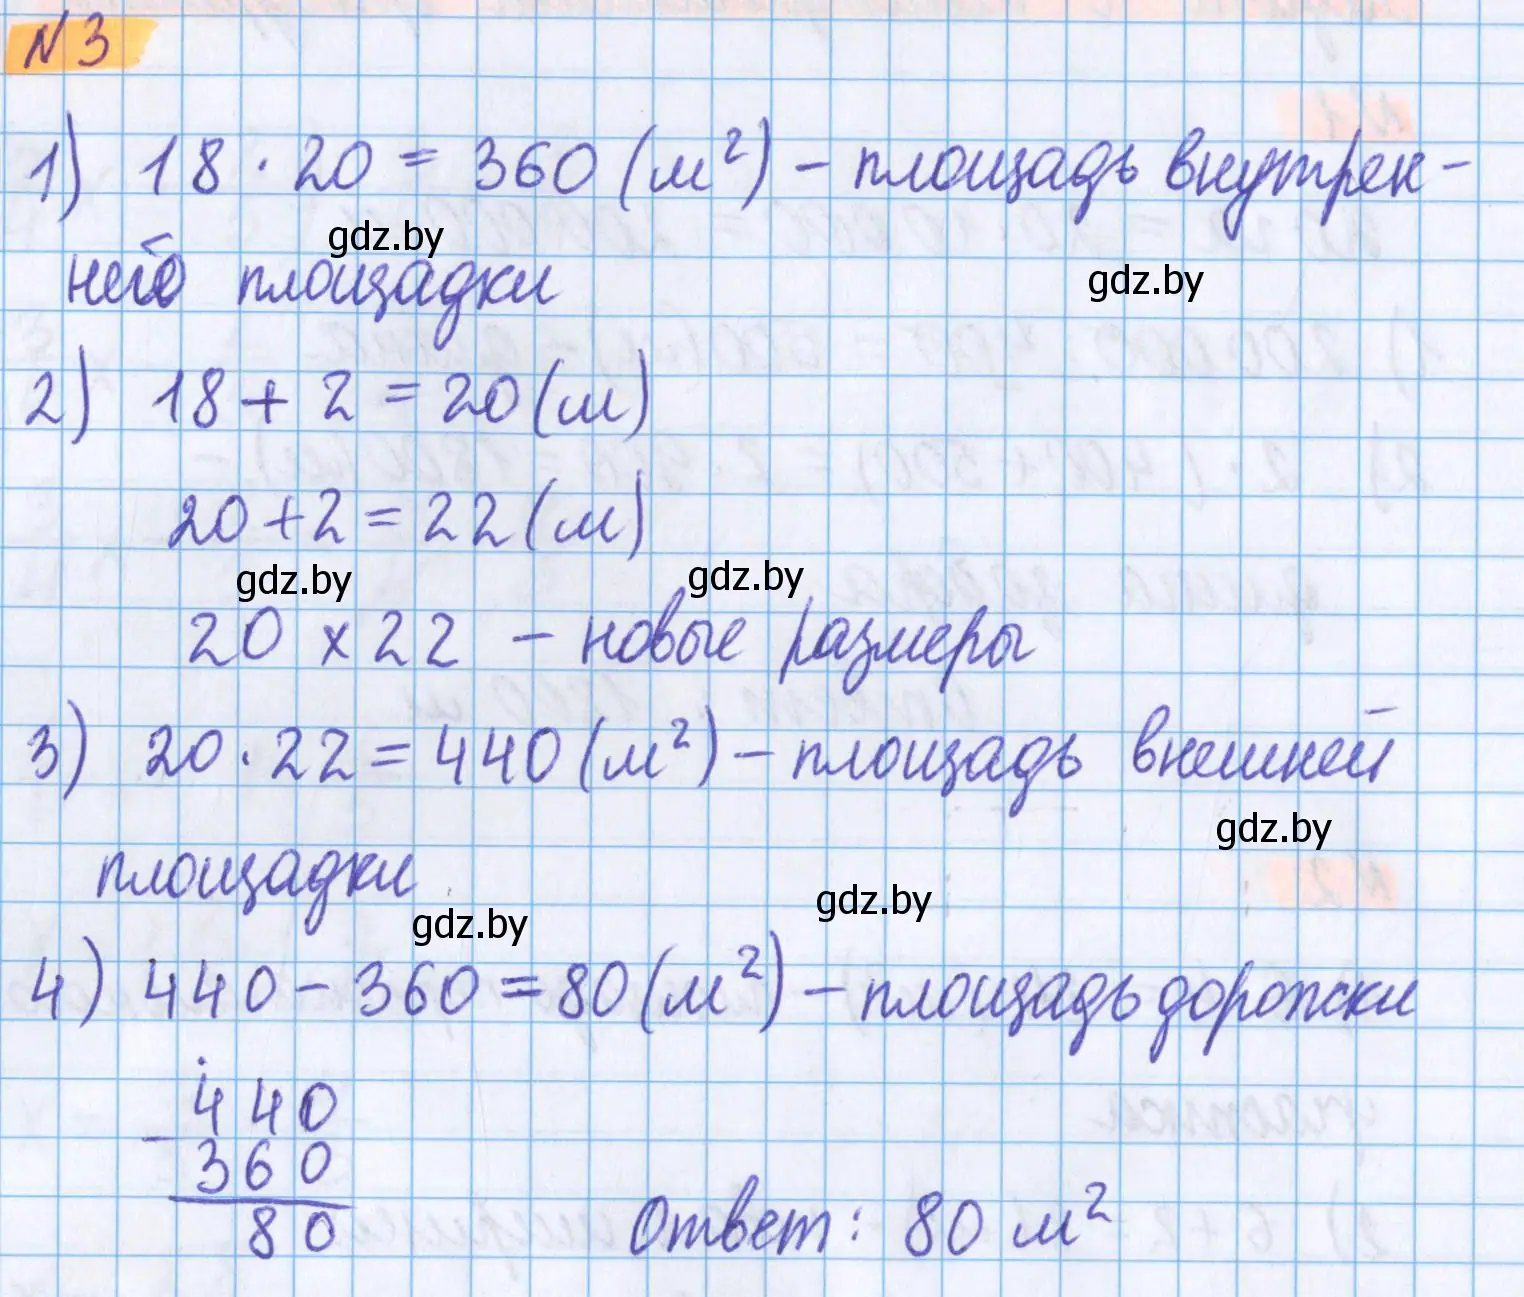 №3
1) 18 · 20 = 360 (м²) – площадь внутрен-
gdz.by
него площадки
gdz.by
2) 18 + 2 = 20 (м)
20 + 2 = 22 (м)
gdz.by
gdz.by
20 x 22 – новые размеры
3) 20 · 22 = 440 (м²) – площадь внешней
gdz.by
площадки
gdz.by
gdz.by
4) 440 – 360 = 80 (м²) – площадь дорожки
440
– 360
80
Ответ: 80 м²